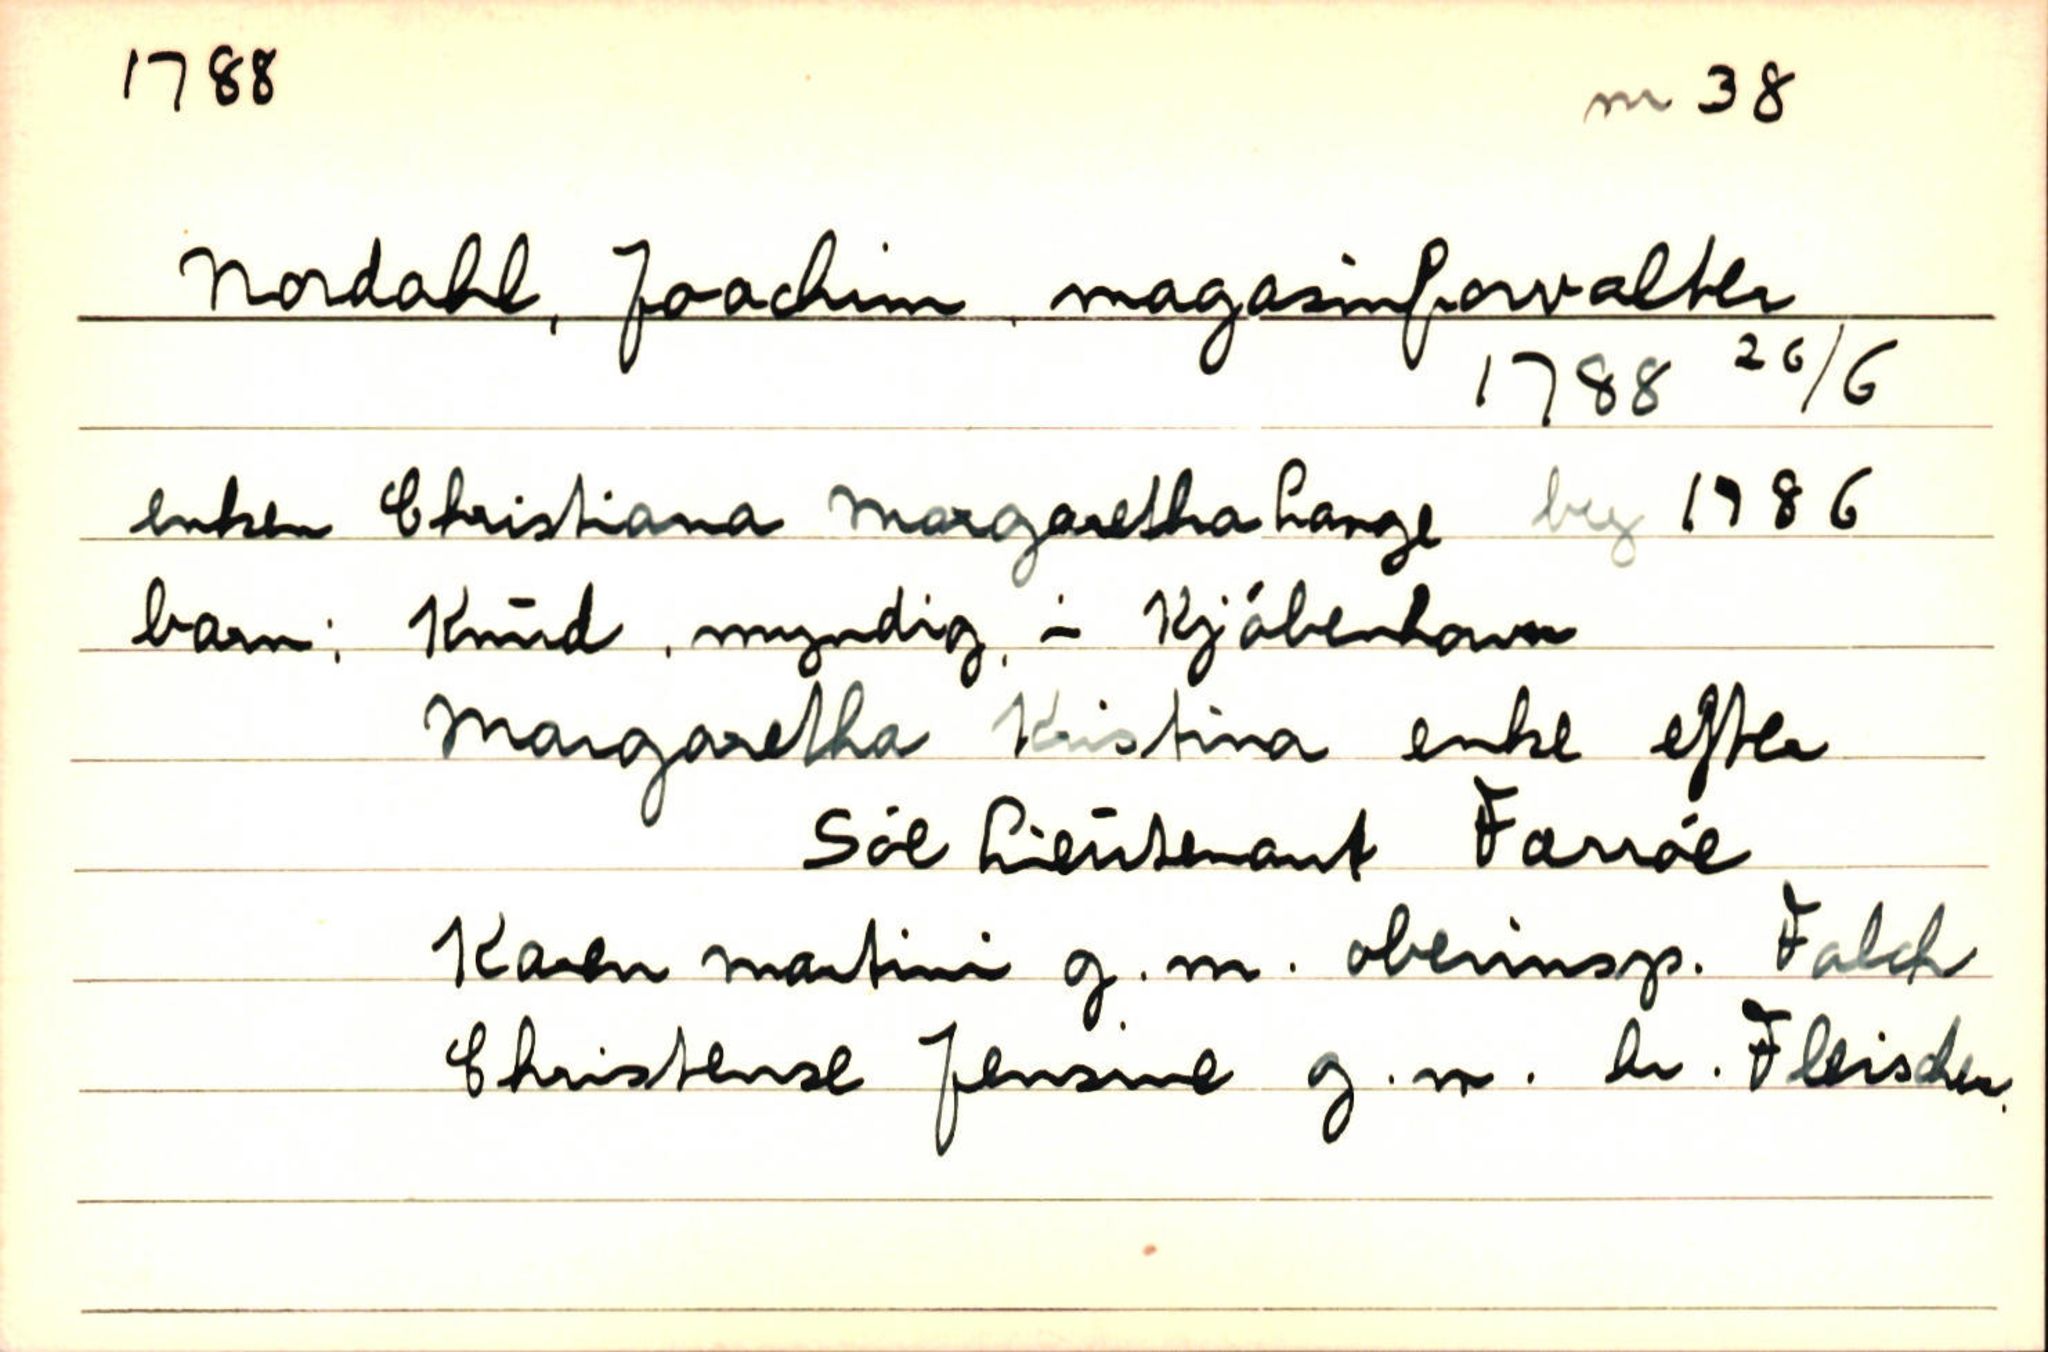 1788 nr 38
Nordahl, Joachim, magasinforvalter
1788 26/6
enken Christiana Margaretha Lange beg 1786
barn: Knūd, myndig, i Kjöbenhavn
Margaretha Kristina enke efter
Söe Lieūtenant Færröe
Karen Martini g.m. oberinsp. Falch
Christense Jensine g.m. hr. Fleischer.